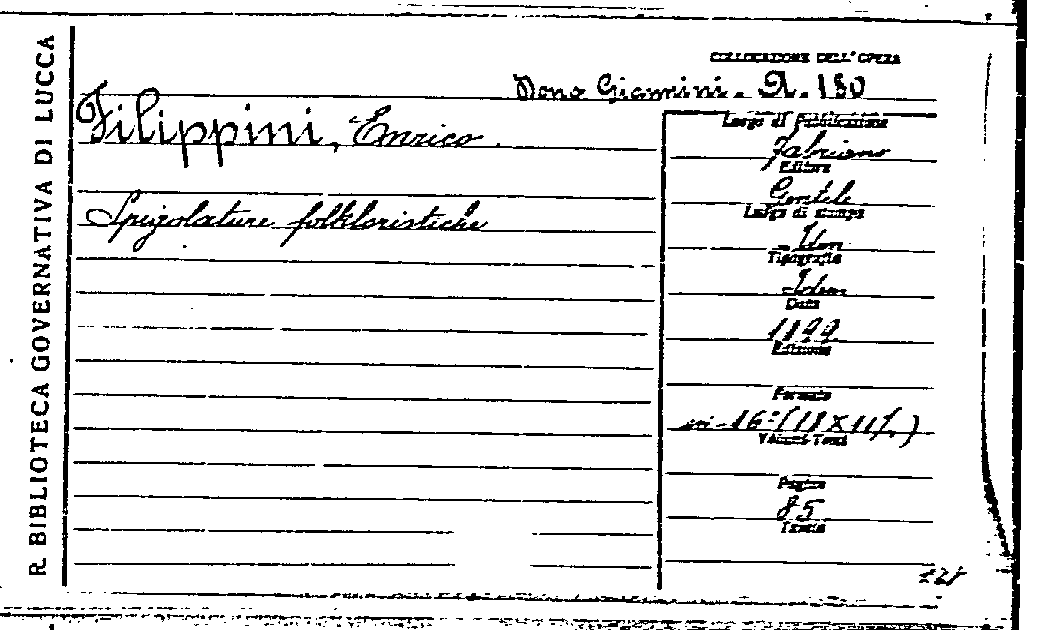 R. BIBLIOTECA GOVERNATIVA DI LUCCA
COLLOCAZIONE DELL'OPERA
Dono Giannini. A. 130
Filippini, Enrico.
Spigolature folkloristiche
Luogo di Pubblicazione
Fabriano
Editore
Gentile
Luogo di stampa
Idem
Tipografia
Idem
Data
1899
Edizione
Formato
in-16º (18 X 11/.)
Volumi-Tomi
Pagine
85
Tavole